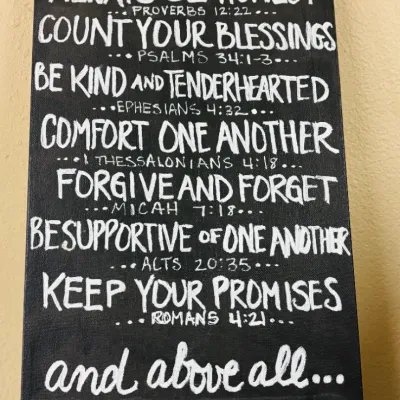 ALWAYS BE HONEST
PROVERBS 12:22
COUNT YOUR BLESSINGS
...PSALMS 34:1-3...
BE KIND AND TENDERHEARTED
...EPHESIANS 4:32...
COMFORT ONE ANOTHER
...1 THESSALONIANS 4:18...
FORGIVE AND FORGET
...MICAH 7:18...
BE SUPPORTIVE OF ONE ANOTHER
...ACTS 20:35...
KEEP YOUR PROMISES
...ROMANS 4:21...
and above all...